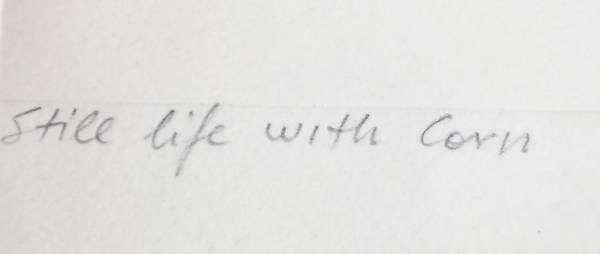 Still life with Corn